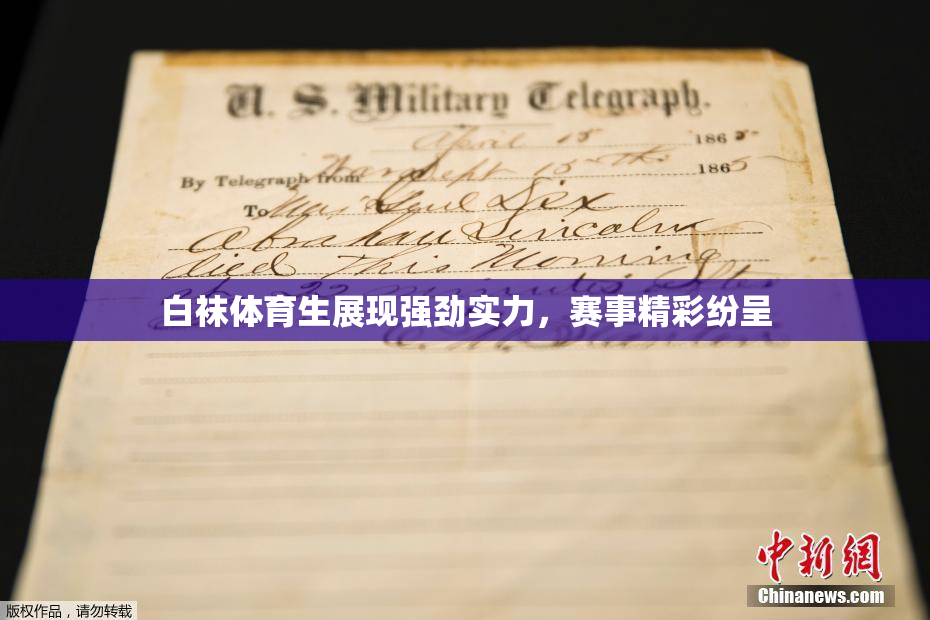 U. S. Military Telegraph.
April 15 1865
By Telegraph from War Dept 15th 1865
To Maj Genl Dix
Abraham Lincoln
died This Morning
22 minutes after
白袜体育生展现强劲实力，赛事精彩纷呈
E. M. Stanton
中新網
Chinanews.com
版权作品，请勿转载